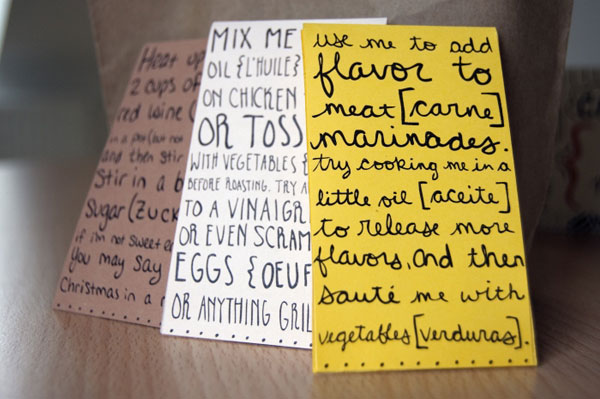 Heat up
2 cups of
red wine
in a pot (but not
and then stir
Stir in a b
Sugar (Zuck
if i'm not sweet e
You may say
Christmas in a
MIX ME
OIL {L'HUILE}
ON CHICKEN
OR TOSS
WITH VEGETABLES {
BEFORE ROASTING. TRY A
TO A VINAIGR
OR EVEN SCRAM
EGGS {OEUF
OR ANYTHING GRIL
use me to add
flavor to
meat [carne]
marinades.
try cooking me in a
little oil [aceite]
to release more
flavors, and then
sauté me with
vegetables [verduras].